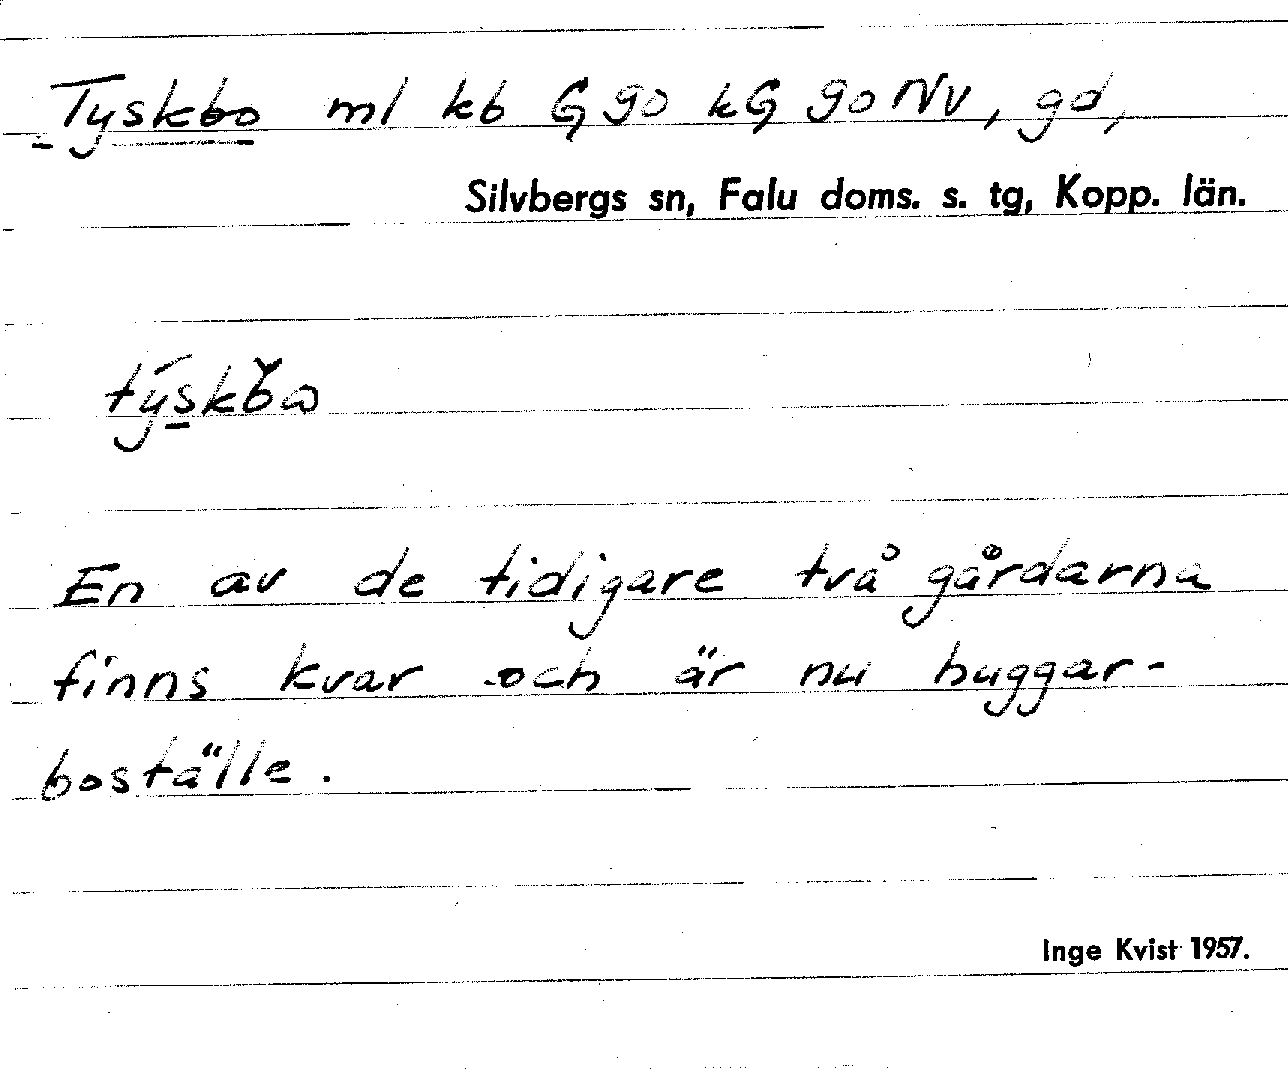 Tyskbo ml kb G go kG go NV, gd,
Silvbergs sn, Falu doms. s. tg, Kopp. län.
En av de tidigare två gårdarna
finns kvar och är nu huggar-
boställe.
Inge Kvist 1957.